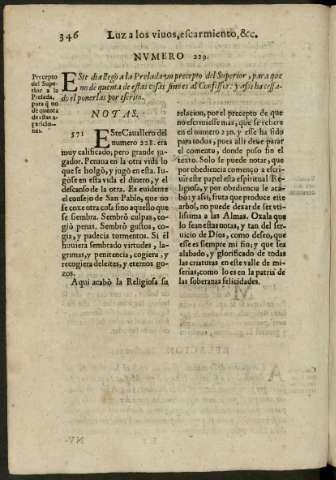 346 Luz a los viuos, escarmiento, &c.
NVMERO 229.
Precepto
del Supe-
rior a la
Prelada,
para q̃ no
dè cuenta
de estas a-
paricio-
nes.
Este dia llegò a la Prelada un precepto del Superior, para que
no dè quenta de estas cosas sino es al Confessor: y assi ha cessa-
do el ponerlas por escrito.
NOTAS.
571 Este Cavallero del
numero 228. era
muy calificado, pero grande ju-
gador. Penaua en la otra vida lo
que se holgò, y jugò en esta. Iu-
gose en esta vida el dinero, y el
descanso de la otra. Es euidente
el consejo de San Pablo, que no
se coxe otra cosa sino aquello que
se siembra. Sembrò culpas, co-
giò penas. Sembrò gustos, co-
giò, y padeciò tormentos. Si el
huuiera sembrado virtudes, la-
grimas, y penitencia, cogiera, y
recogiera deleites, y eternos go-
zos.
Aqui acabò la Religiosa su
relacion, por el precepto de que
no escriuiesse mas, que se refiere
en el numero 230. y esse ha sido
para todos; pues alli dexè parar
el comento, donde puso fin el
texto. Solo se puede notar, que
por obediencia començo a escri-
uir este papel esta espiritual Re-
ligiosa, y por obediencia le aca-
bò; y assi, fruta que produce este
arbol, no puede dexar de ser vti-
lissima a las Almas. Oxala que
lo sean estas notas, y tan del ser-
uicio de Dios, como desseo, que
esse es siempre mi fin; y que sea
alabado, y glorificado de todas
las criaturas en este valle de mi-
serias, como lo es en la patria de
las soberanas felicidades.
NV-